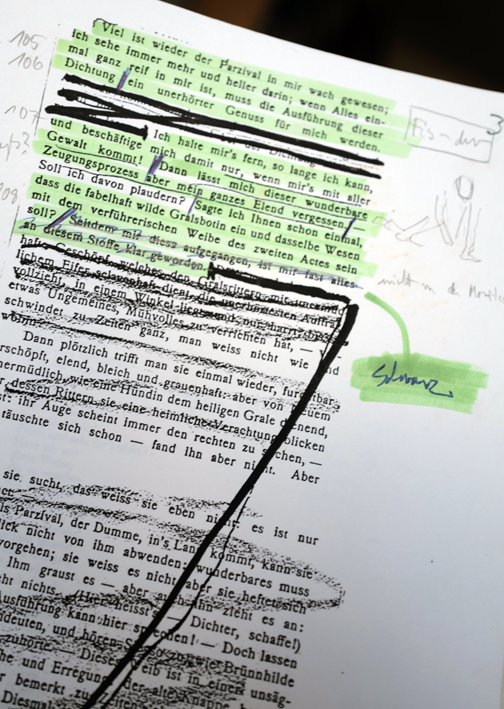 105
106
107
Viel ist wieder der Parzival in mir wach gewesen;
ich sehe immer mehr und heller darin; wenn Alles ein-
mal ganz reif in mir ist, muss die Ausführung dieser
Dichtung ein unerhörter Genuss für mich werden.
Ich halte mir's fern, so lange ich kann,
und beschäftige mich damit nur, wenn mir's mit aller
Gewalt kommt! Dann lässt mich dieser wunderbare
Zeugungsprozess aber mein ganzes Elend vergessen.
Soll ich davon plaudern? Sagte ich Ihnen schon einmal,
dass die fabelhaft wilde Gralsbotin ein und dasselbe Wesen
mit dem verführerischen Weibe des zweiten Actes sein
soll? Seitdem mir diess aufgegangen, ist mir fast alles
an diesem Stoffe klar geworden.
Schwarz
haft Geschöpf, welches den Gralsrittern mit
lichem Eifer dient, die unerhörtesten Aufträ
vollzieht, in einem Winkel liegt und nur harrt, bis
etwas Ungemeines, Mühvolles zu verrichten hat, —
schwindet zu Zeiten ganz, man weiss nicht wie und
wohin?
Dann plötzlich trifft man sie einmal wieder, furchtbar
rschöpft, elend, bleich und grauenhaft: aber von neuem
nermüdlich, wie eine Hündin dem heiligen Grale dienend,
r dessen Rittern sie eine heimliche Verachtung blicken
st: ihr Auge scheint immer den rechten zu suchen, —
täuschte sich schon — fand ihn aber nicht. Aber
sie sucht, das weiss sie eben nicht: es ist nur
ls Parzival, der Dumme, in's Land kommt, kann sie
lick nicht von ihm abwenden: wunderbares muss
vorgehen; sie weiss es nicht, aber sie heftet sich
Ihm graust es — aber auch ihn zieht es an:
cht nichts. (Hier heisst's — Dichter, schaffe!)
Ausführung kann hier sprechen! — Doch lassen
ndeuten, und hören Sie so zu, wie Brünnhilde
zuhörte. — Dieses Weib ist in einer unsäg-
he und Erregung: der alte Knappe
r bemerkt zu Zeiten
Diesmal